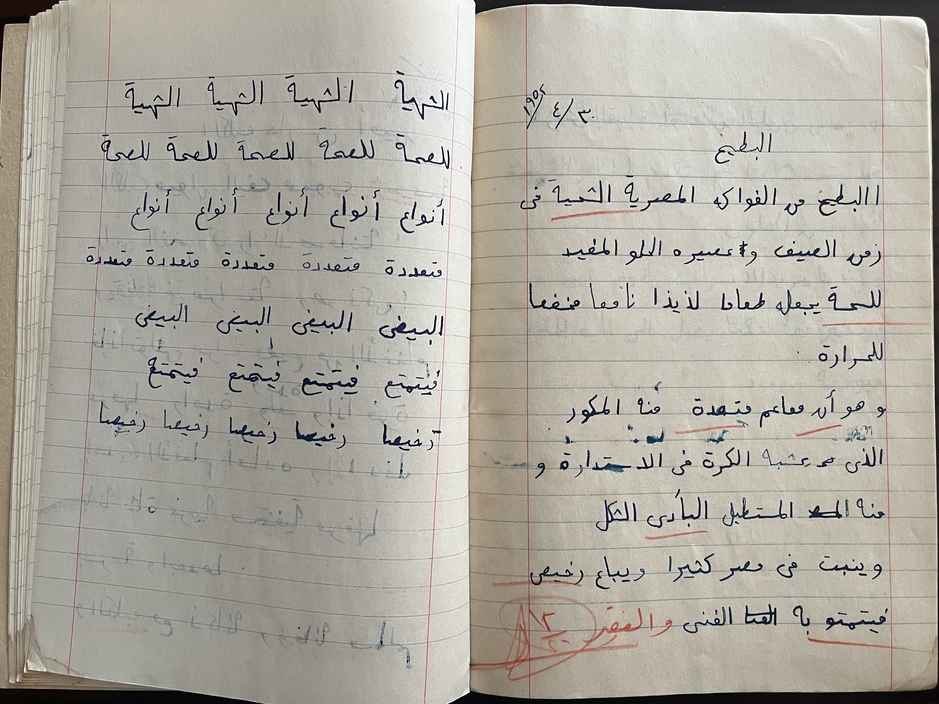 ١٩٥٢/٤/٣٠
البطيخ
االبطيخ من الفواكه المصرية الشحية فى
زمن الصيف و عصيره الحلو المفيد
للصحة يجعله طعاما لذيذا نافعا مخفضا
للحرارة
و هو أن معاعم متعدة منه المكور
الذى يشبه الكرة فى الاستدارة و
منه المستطيل البأدى الشكل
وينبت فى مصر كثيرا ويباع رخيص
فيتمتو به الغنى والفقر
الشهية الشهية الشهية الشهية
للصحة للصحة للصحة للصحة للصحة
أنواع أنواع أنواع أنواع أنواع
متعددة متعددة متعددة متعددة متعددة
البيضى البيضى البيضى البيضى
فيتمتع فيتمتع فيتمتع فيتمتع
رخيصا رخيصا رخيصا رخيصا رخيصا